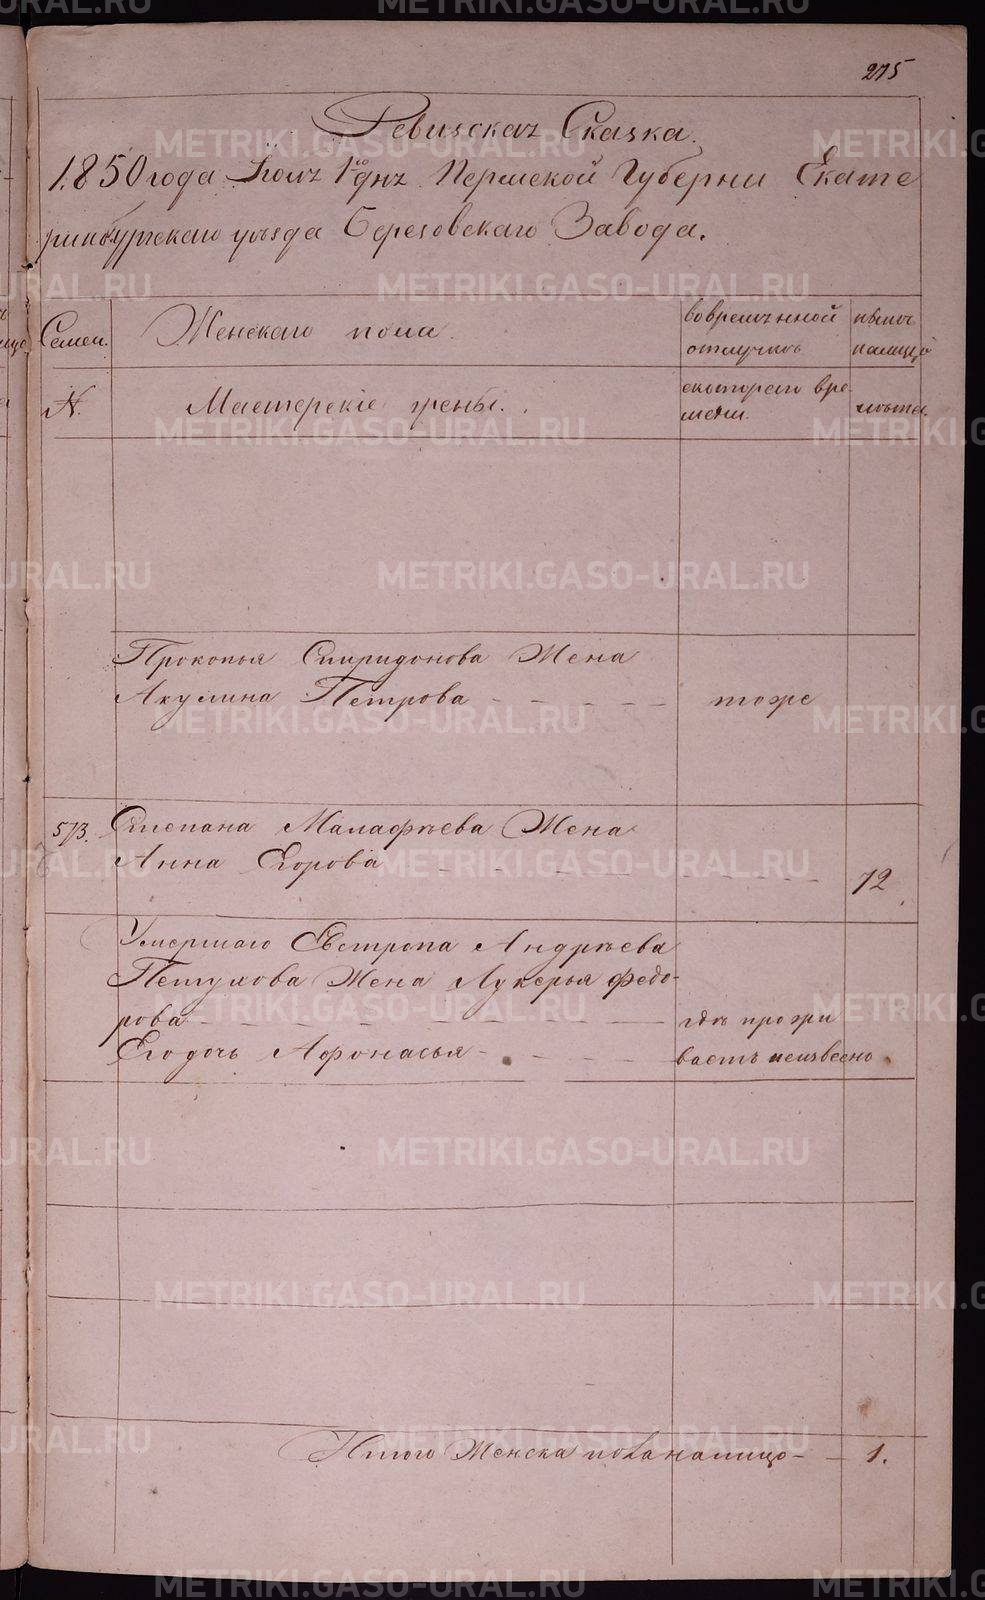 275
Ревизская Сказка.
1850 года Iюля 1го дня Пермской Губернии Екате
ринбургскаго уезда Березовскаго Завода.
Семеи. Женскаго пола. вовременной отлучке ныне налицо
№. Мастерскiе жены. скотораго вре мени лета.
Прокопья Спиридонова Жена
Акулина Петрова - - - - - тоже
573. Степана Малафеева Жена
Анна Егорова - - - - - - 72
Умершаго Евстропа Андреева
Петухова Жена Лукерья Федо-
рова - - - - - - - где прожи
Его дочь Афонасья - - - - - ваетъ неизвесно
Итого Женска пола налицо - - 1.
METRIKI.GASO-URAL.RU